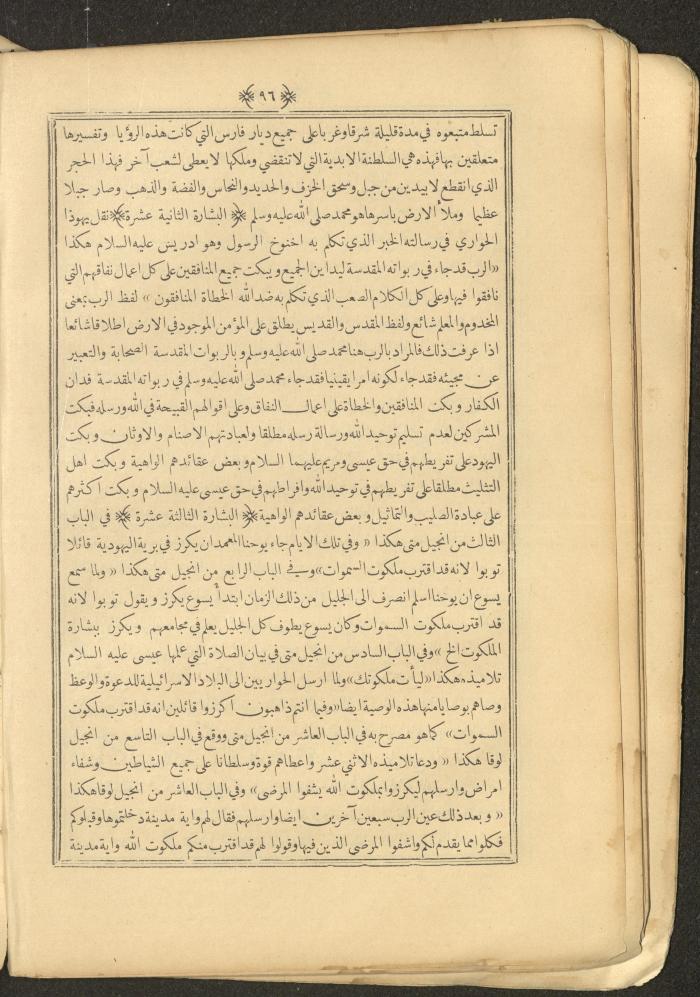 ٩٦
تسلط متبعوه في مدة قليلة شرقا وغربا على جميع ديار فارس التي كانت هذه الرؤيا وتفسيرها
متعلقين بها فهذه هي السلطنة الابدية التي لا تنقضي وملكها لا يعطى لشعب آخر فهذا الحجر
الذي انقطع لا بيدين من جبل وسحق الخزف والحديد والنحاس والفضة والذهب وصار جبلا
عظيما وملأ الارض باسرها هو محمد صلى الله عليه وسلم ﴿ البشارة الثانية عشرة ﴾ نقل يهوذا
الحواري في رسالته الخبر الذي تكلم به اخنوخ الرسول وهو ادريس عليه السلام هكذا
«الرب قد جاء في ربواته المقدسة ليداين الجميع ويبكت جميع المنافقين على كل اعمال نفاقهم التي
نافقوا فيها وعلى كل الكلام الصعب الذي تكلم به ضد الله الخطاة المنافقون » لفظ الرب بمعنى
المخدوم والمعلم شائع ولفظ المقدس والقديس يطلق على المؤمن الموجود في الارض اطلاقا شائعا
اذا عرفت ذلك فالمراد بالرب هنا محمد صلى الله عليه وسلم وبالربوات المقدسة الصحابة والتعبير
عن مجيئه فقد جاء لكونه امرا يقينيا فقد جاء محمد صلى الله عليه وسلم في ربواته المقدسة فدان
الكفار وبكت المنافقين والخطاة على اعمال النفاق وعلى اقوالهم القبيحة في الله ورسله فبكت
المشركين لعدم تسليم توحيد الله ورسالة رسله مطلقا ولعبادتهم الاصنام والاوثان وبكت
اليهود على تفريطهم في حق عيسى ومريم عليهما السلام وبعض عقائدهم الواهية وبكت اهل
التثليث مطلقا على تفريطهم في توحيد الله وافراطهم في حق عيسى عليه السلام وبكت اكثرهم
على عبادة الصليب والتماثيل وبعض عقائدهم الواهية ﴿ البشارة الثالثة عشرة ﴾ في الباب
الثالث من انجيل متى هكذا « وفي تلك الايام جاء يوحنا المعمدان يكرز في برية اليهودية قائلا
توبوا لانه قد اقترب ملكوت السموات» وفي الباب الرابع من انجيل متى هكذا « ولما سمع
يسوع ان يوحنا اسلم انصرف الى الجليل من ذلك الزمان ابتدأ يسوع يكرز ويقول توبوا لانه
قد اقترب ملكوت السموات وكان يسوع يطوف كل الجليل يعلم في مجامعهم ويكرز ببشارة
الملكوت الخ » وفي الباب السادس من انجيل متى في بيان الصلاة التي علمها عيسى عليه السلام
تلاميذه هكذا « ليأت ملكوتك» ولما ارسل الحواريين الى البلاد الاسرائيلية للدعوة والوعظ
وصاهم بوصايا منها هذه الوصية ايضا « وفيما انتم ذاهبون اكرزوا قائلين انه قد اقترب ملكوت
السموات» كما هو مصرح به في الباب العاشر من انجيل متى ووقع في الباب التاسع من انجيل
لوقا هكذا « ودعا تلاميذه الاثني عشر واعطاهم قوة وسلطانا على جميع الشياطين وشفاء
امراض وارسلهم ليكرزوا بملكوت الله يشفوا المرضى» وفي الباب العاشر من انجيل لوقا هكذا
« وبعد ذلك عين الرب سبعين آخرين ايضا وارسلهم فقال لهم واية مدينة دخلتموها وقبلوكم
فكلوا مما يقدم لكم واشفوا المرضى الذين فيها وقولوا لهم قد اقترب منكم ملكوت الله واية مدينة